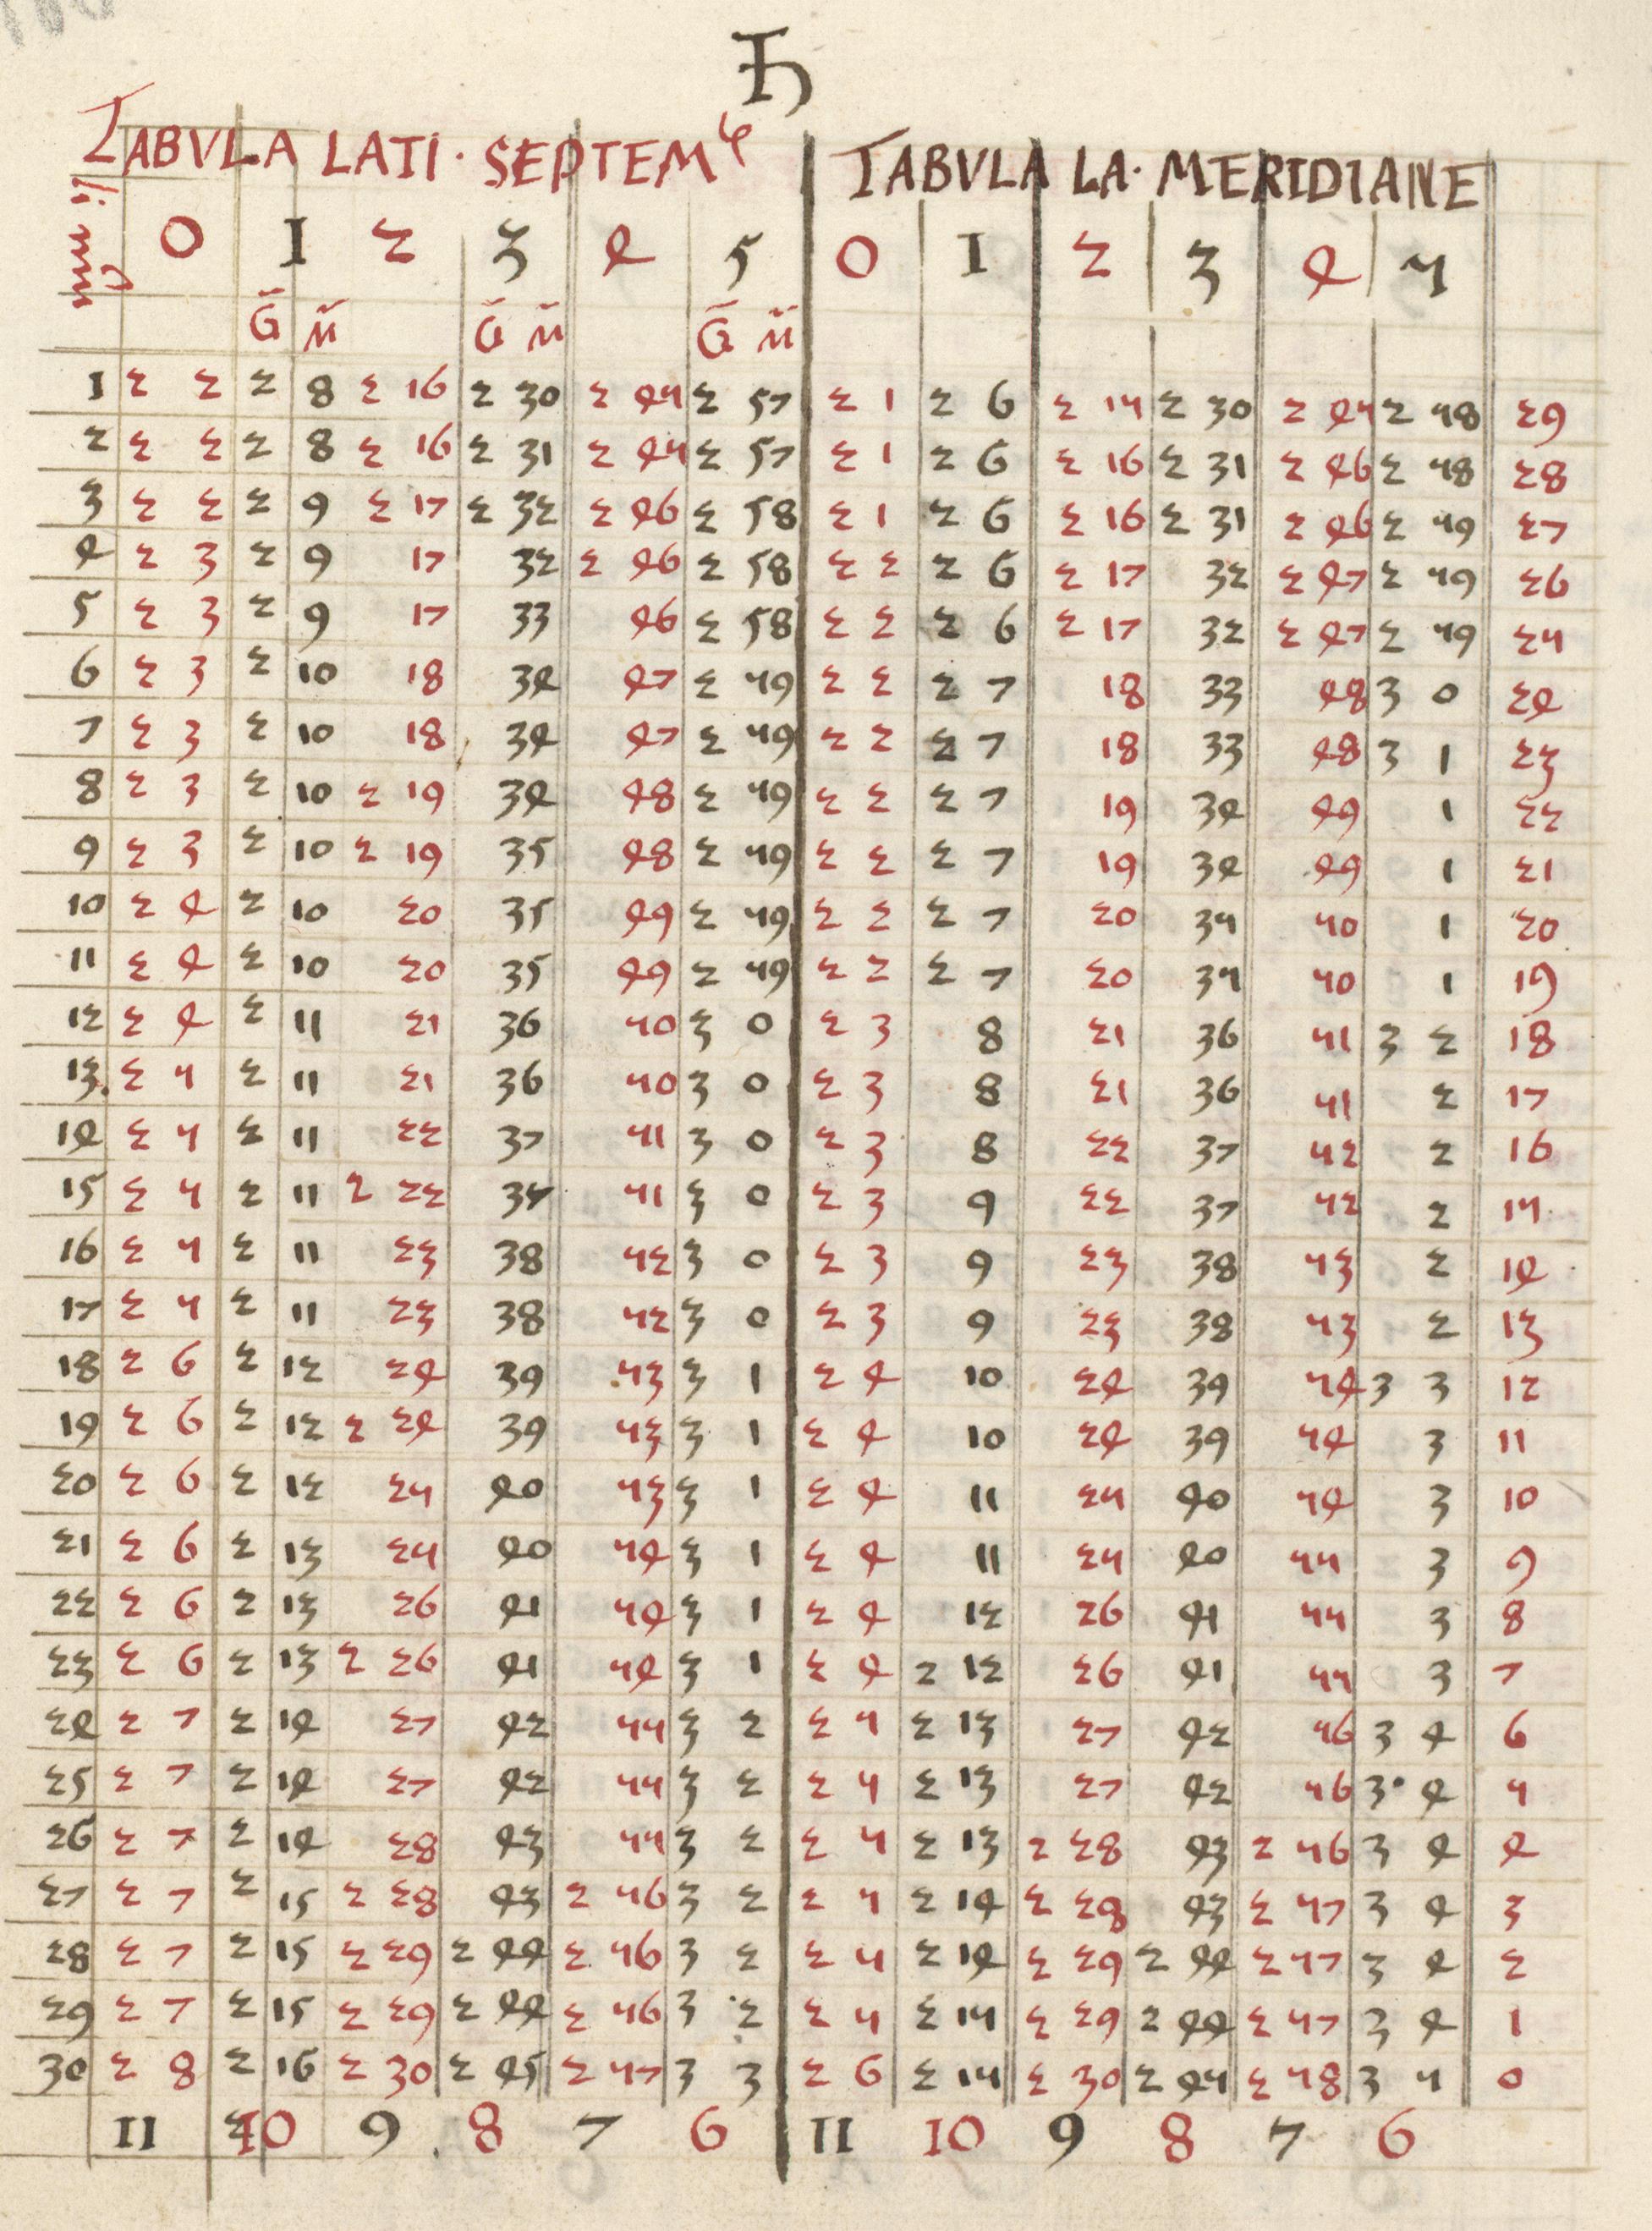 ♄
TABVLA LATI · SEPTEMͭ TABVLA LA · MERIDIANE
0 1 2 3 4 5 0 1 2 3 4 5
G̃ m̃ G̃ m̃ G̃ m̃
1 2 2 2 8 2 16 2 30 2 45 2 57 2 1 2 6 2 15 2 30 2 45 2 58 29
2 2 2 2 8 2 16 2 31 2 45 2 57 2 1 2 6 2 16 2 31 2 46 2 58 28
3 2 2 2 9 2 17 2 32 2 46 2 58 2 1 2 6 2 16 2 31 2 46 2 59 27
4 2 3 2 9 17 32 2 46 2 58 2 2 2 6 2 17 32 2 47 2 59 26
5 2 3 2 9 17 33 46 2 58 2 2 2 6 2 17 32 2 47 2 59 25
6 2 3 2 10 18 34 47 2 59 2 2 2 7 18 33 48 3 0 24
7 2 3 2 10 18 34 47 2 59 2 2 2 7 18 33 48 3 1 23
8 2 3 2 10 2 19 34 48 2 59 2 2 2 7 19 34 49 1 22
9 2 3 2 10 2 19 35 48 2 59 2 2 2 7 19 34 49 1 21
10 2 4 2 10 20 35 49 2 59 2 2 2 7 20 35 50 1 20
11 2 4 2 10 20 35 49 2 59 2 2 2 7 20 35 50 1 19
12 2 4 2 11 21 36 50 3 0 2 3 8 21 36 51 3 2 18
13. 2 5 2 11 21 36 50 3 0 2 3 8 21 36 51 2 17
14 2 5 2 11 22 37 51 3 0 2 3 8 22 37 52 2 16
15 2 5 2 11 2 22 37 51 3 0 2 3 9 22 37 52 2 15
16 2 5 2 11 23 38 52 3 0 2 3 9 23 38 53 2 14
17 2 5 2 11 23 38 52 3 0 2 3 9 23 38 53 2 13
18 2 6 2 12 24 39 53 3 1 2 4 10 24 39 54 3 3 12
19 2 6 2 12 2 24 39 53 3 1 2 4 10 24 39 54 3 11
20 2 6 2 12 25 40 53 3 1 2 4 11 25 40 54 3 10
21 2 6 2 13 25 40 54 3 1 2 4 11 25 40 55 3 9
22 2 6 2 13 26 41 54 3 1 2 4 12 26 41 55 3 8
23 2 6 2 13 2 26 41 54 3 1 2 4 2 12 26 41 55 3 7
24 2 7 2 14 27 42 55 3 2 2 5 2 13 27 42 56 3 4 6
25 2 7 2 14 27 42 55 3 2 2 5 2 13 27 42 56 3 4 5
26 2 7 2 14 28 43 55 3 2 2 5 2 13 2 28 43 2 56 3 4 4
27 2 7 2 15 2 28 43 2 56 3 2 2 5 2 14 2 28 43 2 57 3 4 3
28 2 7 2 15 2 29 2 44 2 56 3 2 2 5 2 14 2 29 2 44 2 57 3 4 2
29 2 7 2 15 2 29 2 44 2 56 3 2 2 5 2 15 2 29 2 44 2 57 3 4 1
30 2 8 2 16 2 30 2 45 2 57 3 3 2 6 2 15 2 30 2 45 2 58 3 5 0
11 10 9 8 7 6 11 10 9 8 7 6